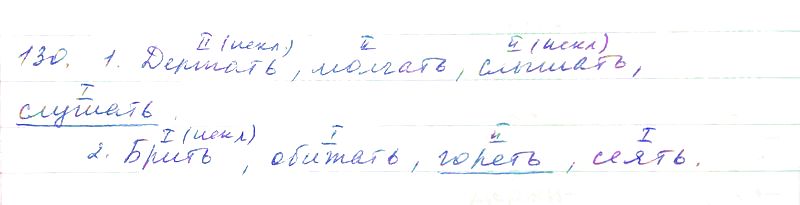 II (искл.) II II (искл)
130. 1. Держать, молчать, слышать,
I
слушать.
I (искл) I II I
2. Брить, обижать, гореть, сеять.